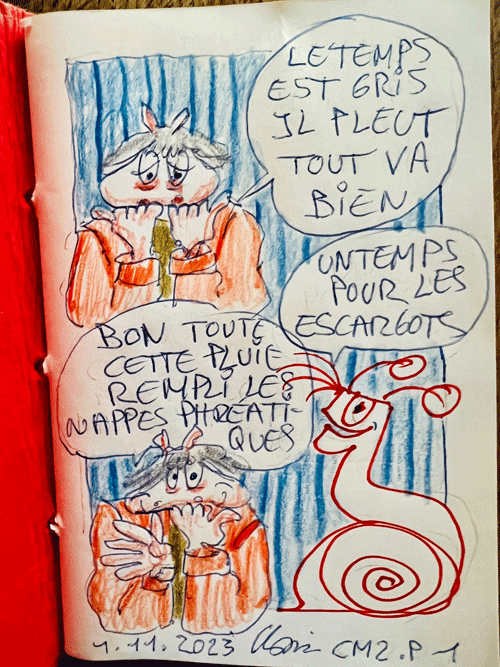 LE TEMPS
EST GRIS
IL PLEUT
TOUT VA
BiEN
UN TEMPS
POUR LES
ESCARGOTS
BON TOUTE
CETTE PLUIE
REMPLI LES
NAPPES PHREATI-
QUES
1.11.2023 CM2.P-1